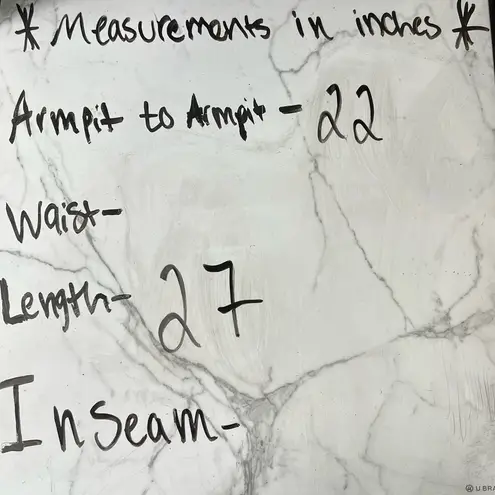 * Measurements in inches *
Armpit to Armpit - 22
Waist-
Length- 27
Inseam-